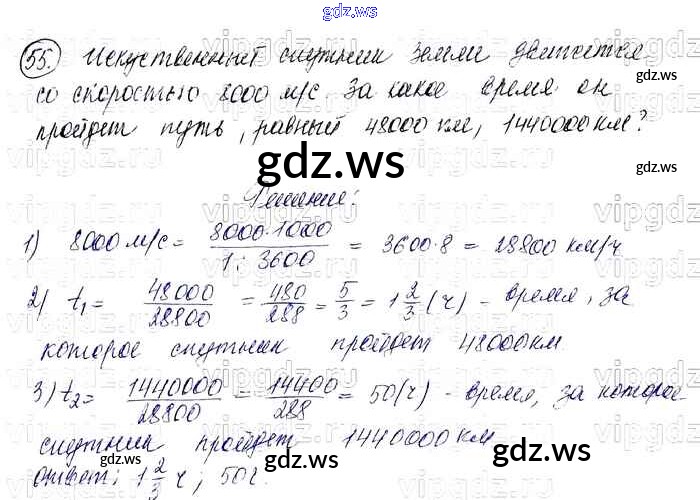 gdz.ws
55. Искуственный спутник Земли движется
со скоростью 8000 м/с. За какое время он
пройдет путь, равный 48000 км, 1440000 км?
gdz.ws
Решение:
1) 8000 м/с = 8000·1000 / 1:3600 = 3600·8 = 28800 км/ч
2) t₁ = 48000/28800 = 480/288 = 5/3 = 1 2/3 (ч) - время, за
которое спутник пройдет 48000 км
gdz.ws
3) t₂ = 1440000/28800 = 14400/288 = 50 (ч) - время, за которое
спутник пройдет 1440000 км
ответ: 1 2/3 ч; 50 ч.
gdz.ws